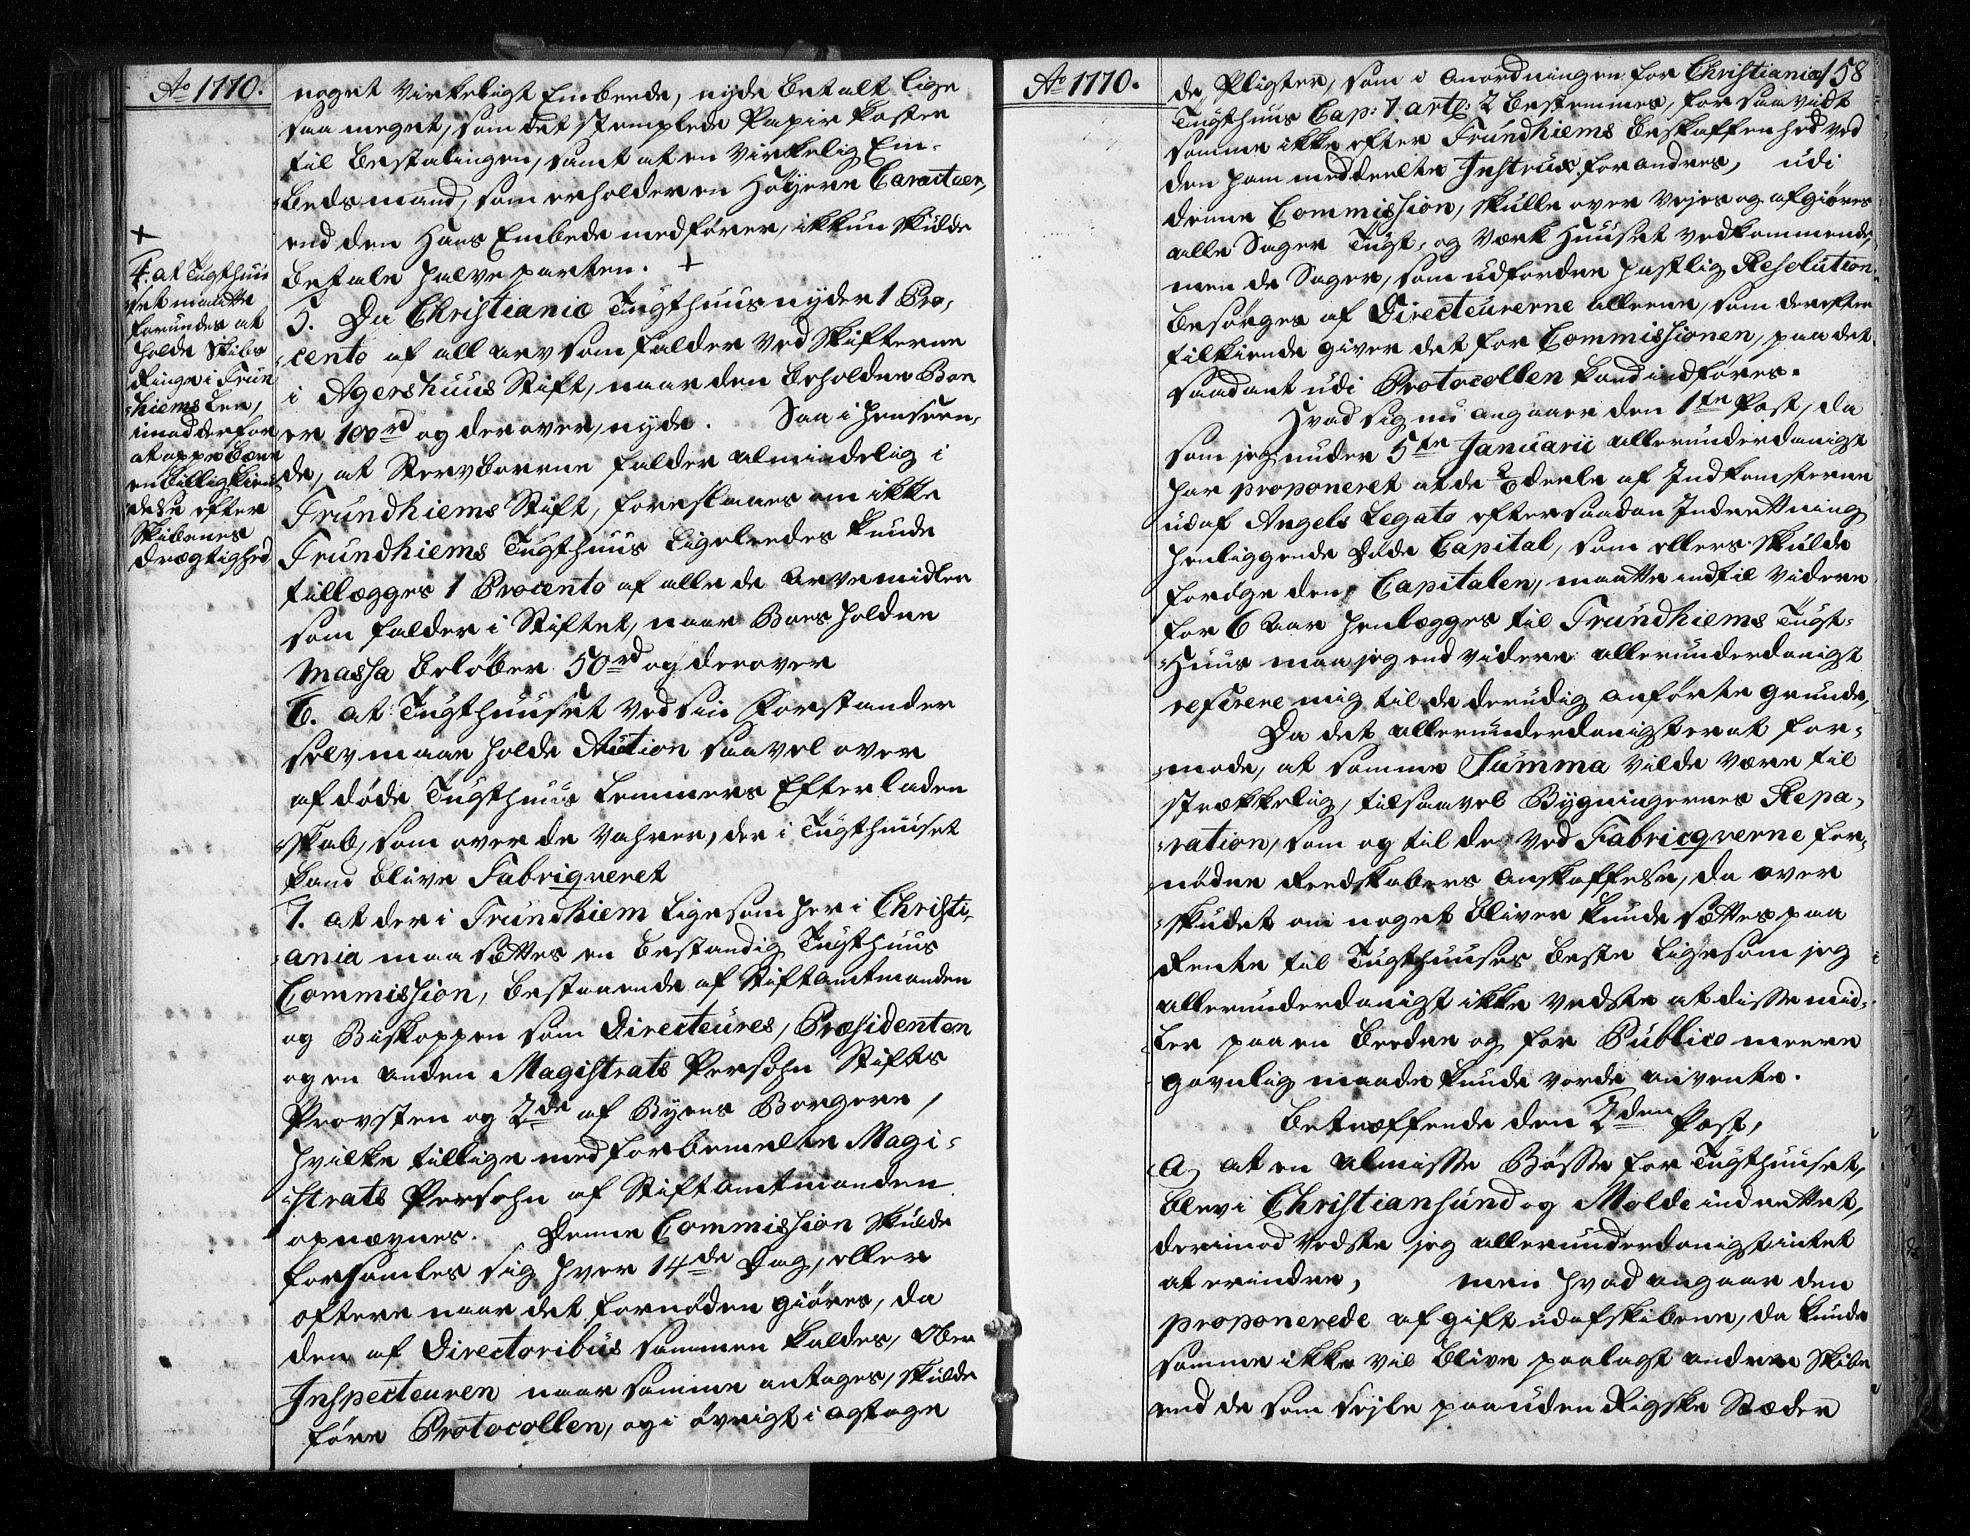 Ao 1770.
noget Virkeligt Embede, nyde betalt lige
saa meget, som det stemplede Papir koster
til bestalingen, samt at en virkelig Em-
beds mand, som erholder en Høyere Caracteer,
end den Hans Embede medfører, ikkun skulde
betale halve parten. +
5. Da Christiania Tugthuus nyder 1 Pro-
cento af all arv som falder ved Skifterne
i Agershuus Stift, naar den beholdne Boe
er 100rd og derover, nyde. Saa i henseen-
de, at Stervboerne falder almindelig i
Trundhiems Stift, foreslaaes om ikke
Trundhiems Tugthuus ligeleedes kunde
tillægges 1 Procento af alle de arvemidler
som falder i Stiftet, naar Boes holdne
Massa beløber 50rd og derover
6. at Tugthuuset ved sin Forstander
selv maae holde Auction saavel over
afdøde Tugthuus Lemmers Efterladen
skab, som over de Vahrer, der i Tugthuuset
kand blive Fabriqveret
7. at der i Trundhiem ligesom her i Christi-
ania maa sættes en bestandig Tugthuus
Commission, bestaaende af Stiftamtmanden
og Biskoppen som Directeures, Præsidenten
og en anden Magistrats Persohn Stifts
Provsten og 2de af Byens Borgere,
hvilke tillige med forbemelte Magi-
strats Persohn af Stiftamtmanden
opnævnes. Denne Commission skulde
forsamles sig hver 14de Dag, eller
oftere naar det fornøden giøres, da
den af Directoribus sammen kaldes, Ober
Inspecteuren naar samme antages, skulde
føre Protocollen, og i øvrigt i agtage
+
4. at Tugthuu
set maatte
forundes at
holde Skibs
Ringe i Trun
hiems Leer,
imod derfor
at oppebære
en billig kien
delse efter
Skibenes
drægtighed
Ao 1770.
158
de Pligter, som i Anordningen for Christiania
Tugthuus Cap: 7 artl: 2 bestemmes, for saavidt
samme ikke efter Trundhiems beskaffenhed ved
den ham meddeelte Instrux forandres, udi
denne Commission, skulle over vejes og afgiøres
alle Sager Tugt- og Værk Huuset vedkommende,
men de Sager, som udfordre hastig Resolution
besørges af Directeurerne allene, som derefter
tilkiende giver det for Commissionen, paa det
saadant udi Protocollen kand indføres.
Hvad sig nu angaaer den 1ste Post, da
som jeg under 5te Januarii allerunderdanigst
har proponeret at de Deele af Indkomsterne
udaf Angels Legato efter saadan Indrettning
henliggende døde Capital, som ellers skulde
forøge den Capitalen, maatte indtil videre
for 6 Aar henlegges til Trundhiems Tugt-
Huus maa jeg end videre allerunderdanigst
referere mig til de derudi anførte grunde,
Da det allerunderdanigst erat for-
mode, at samme Summa vilde være til
strækkelig, til saavel Bygningernes Repa-
ration, som og til de ved Fabricqverne for-
nødne Reedskabers anskaffelse, da over
skudet om noget bliver kunde sættes paa
Rente til Tugthuuses beste ligesom jeg
allerunderdanigst ikke vedste at disse mid-
ler paa en beedre og for Publico meere
gavnlig maade kunde vorde anvente.
Betreffende den 2den Post,
a) at en Almisse Bøsse for Tugthuuset,
blev i Christiansund og Molde indrettet,
derimod vedste jeg allerunderdanigst intet
at erindre, men hvad angaar den
proponerede afgift udaf skibene, da kunde
samme ikke vil blive paalagt andre Skibe
end de som sejle paa uden Rigske Stæder